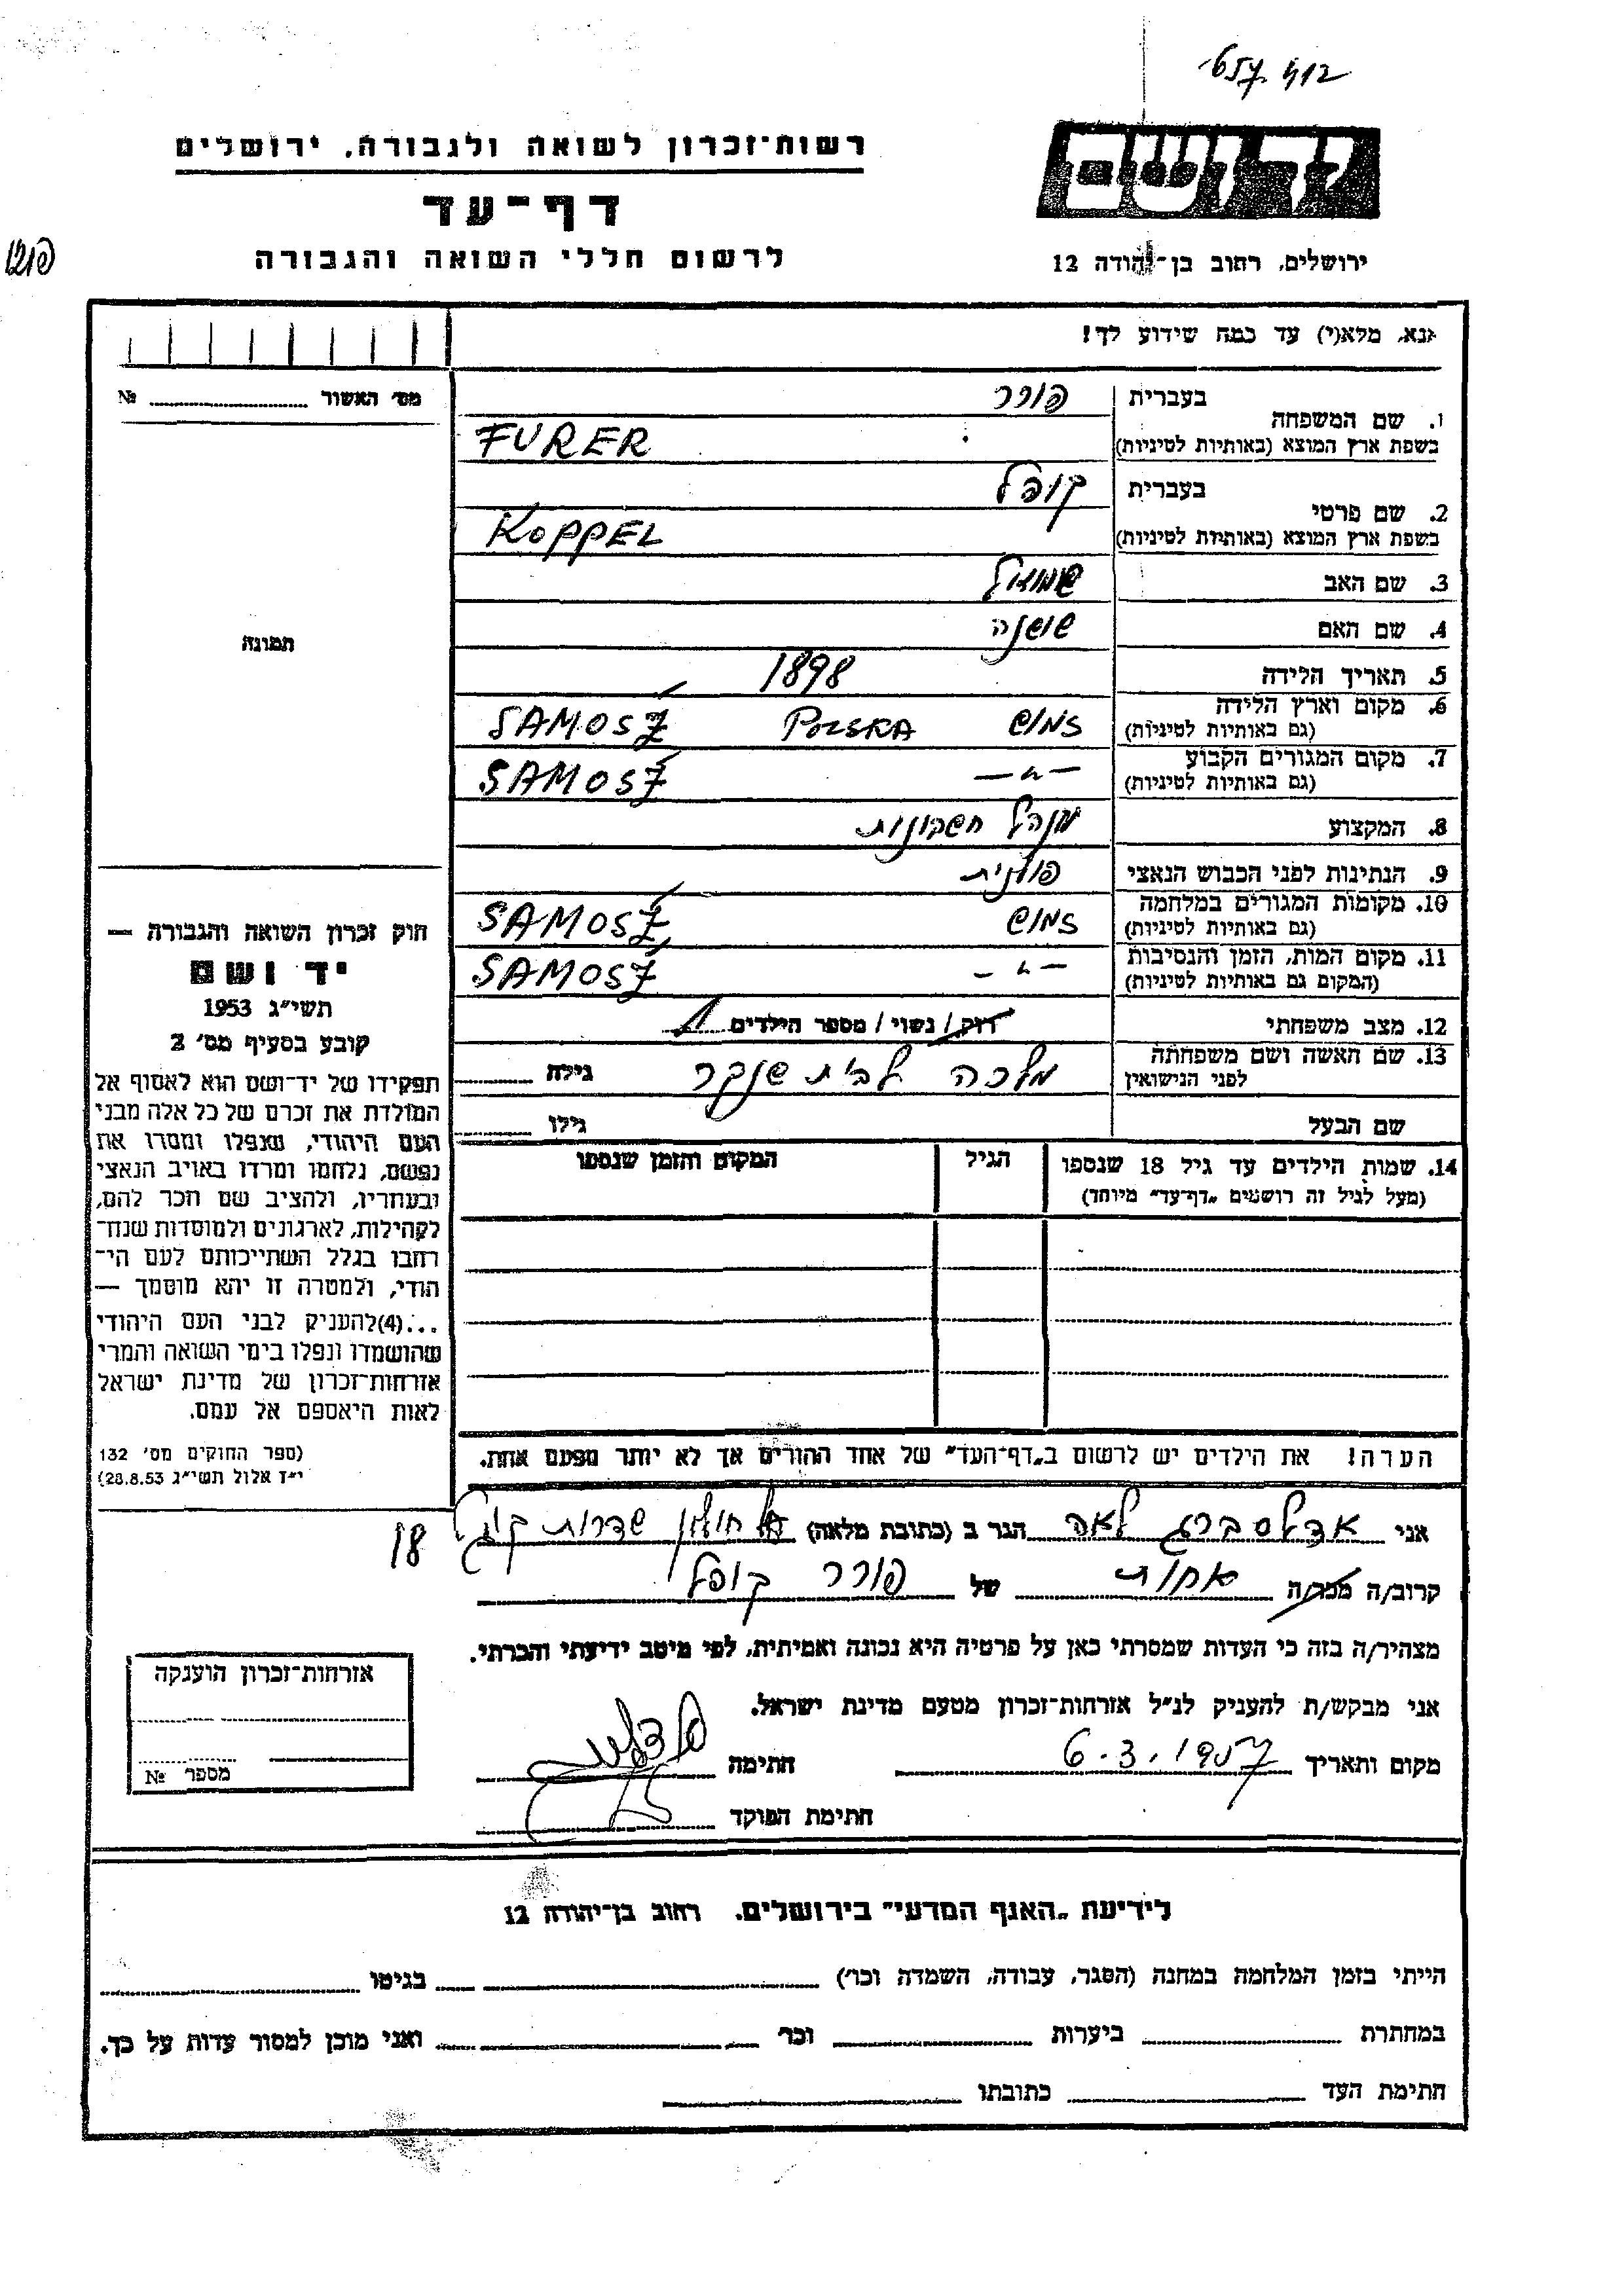 רשות־זכרון לשואה ולגבורה, ירושלים
דף־עד
לרשום חללי השואה והגבורה
ירושלים, רחוב בן־יהודה 12
אנא, מלא(י) עד כמה שידוע לך!
מס' האשור № 
1. שם המשפחה בעברית פורר
בשפת ארץ המוצא (באותיות לטיניות) FURER
2. שם פרטי בעברית קופל
בשפת ארץ המוצא (באותיות לטיניות) KOPPEL
3. שם האב שמואל
4. שם האם שושנה
5. תאריך הלידה 1898
6. מקום וארץ הלידה (גם באותיות לטיניות) זמושץ POLSKA SAMOSZ
7. מקום המגורים הקבוע (גם באותיות לטיניות) –״– SAMOSZ
8. המקצוע מנהל חשבונות
9. הנתינות לפני הכבוש הנאצי פולנית
10. מקומות המגורים במלחמה (גם באותיות לטיניות) SAMOSZ
11. מקום המות, הזמן והנסיבות (המקום גם באותיות לטיניות) –״– SAMOSZ
12. מצב משפחתי רוק/ נשוי/ מספר הילדים 1
13. שם האשה ושם משפחתה לפני הנישואין מלכה לבית שנקר גילה
שם הבעל גילו
14. שמות הילדים עד גיל 18 שנספו הגיל המקום והזמן שנספו
(מעל לגיל זה רושמים „דף־עד״ מיוחד)
הערה! את הילדים יש לרשום ב„דף־העד״ של אחד ההורים אך לא יותר מפעם אחת.
תמונה
חוק זכרון השואה והגבורה —
יד ושם
תשי״ג 1953
קובע בסעיף מס' 2
תפקידו של יד־ושם הוא לאסוף אל
המולדת את זכרם של כל אלה מבני
העם היהודי, שנפלו ומסרו את
נפשם, נלחמו ומרדו באויב הנאצי
ובעוזריו, ולהציב שם וזכר להם,
לקהילות, לארגונים ולמוסדות שנח־
רחבו בגלל השתייכותם לעם הי־
הודי, ולמטרה זו יהא מוסמך —
...(4)להעניק לבני העם היהודי
שהושמדו ונפלו בימי השואה והמרי
אזרחות־זכרון של מדינת ישראל
לאות היאספם אל עמם.
(ספר החוקים מס' 132
י״ז אלול תשי״ג 28.8.53)
אני אדלסברג לאה הגר ב (כתובת מלאה) חולון שדרות 18
קרוב/ה מכר/ה אחות של פורר קופל
מצהיר/ה בזה כי העדות שמסרתי כאן על פרטיה היא נכונה ואמיתית, לפי מיטב ידיעתי והכרתי.
אני מבקש/ת להעניק לנ״ל אזרחות־זכרון מטעם מדינת ישראל.
מקום ותאריך 6.3.1957 חתימה
חתימת הפוקד
אזרחות־זכרון הוענקה
מספר №
לידיעת „האגף המדעי״ בירושלים, רחוב בן־יהודה 12
הייתי בזמן המלחמה במחנה (הסגר, עבודה, השמדה וכו') בגיטו
במחתרת ביערות וכו' ואני מוכן למסור עדות על כך.
חתימת העד כתובתו